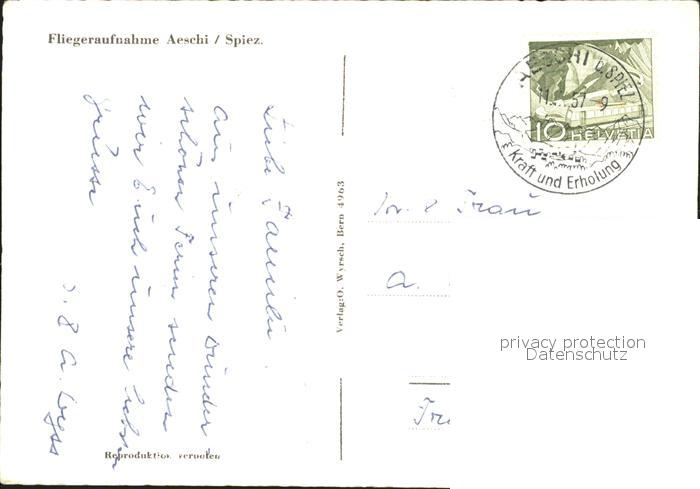 Fliegeraufnahme Aeschi / Spiez.
AESCHI b. SPIEZ
51 - 9
10 HELVETIA
Kraft und Erholung
Liebe Familie.
Aus unseren wunder
schönen Ferien senden
wir Euch unsere lieben
Grüsse
J. & A. Wyss
Verlag: O. Wyrsch, Bern 4963
Reproduktion verboten
Frau
A.
privacy protection
Datenschutz